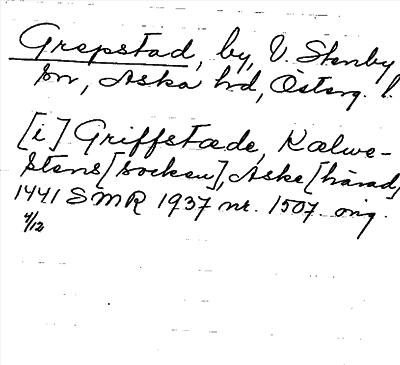 Grepstad, by, V. Stenby
sn, Aska hd, Österg. l.
[i] Griffstæde, Kælwe-
stens [socken], Aske [härad]
1441 SMR 1937 nr. 1507. orig.
4/12